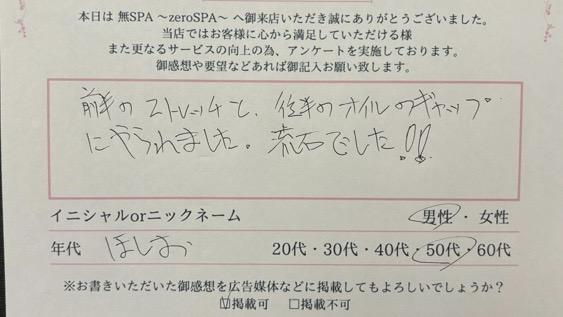 本日は 無SPA 〜zeroSPA〜 へ御来店いただき誠にありがとうございました。
当店ではお客様に心から満足していただける様
また更なるサービスの向上の為、アンケートを実施しております。
御感想や要望などあれば御記入お願い致します。
前半のストレッチと、後半のオイルのギャップ
にやられました。流石でした!!
イニシャルorニックネーム
男性・女性
年代 ほしお 20代・30代・40代・50代・60代
※お書きいただいた御感想を広告媒体などに掲載してもよろしいでしょうか?
☑掲載可 □掲載不可